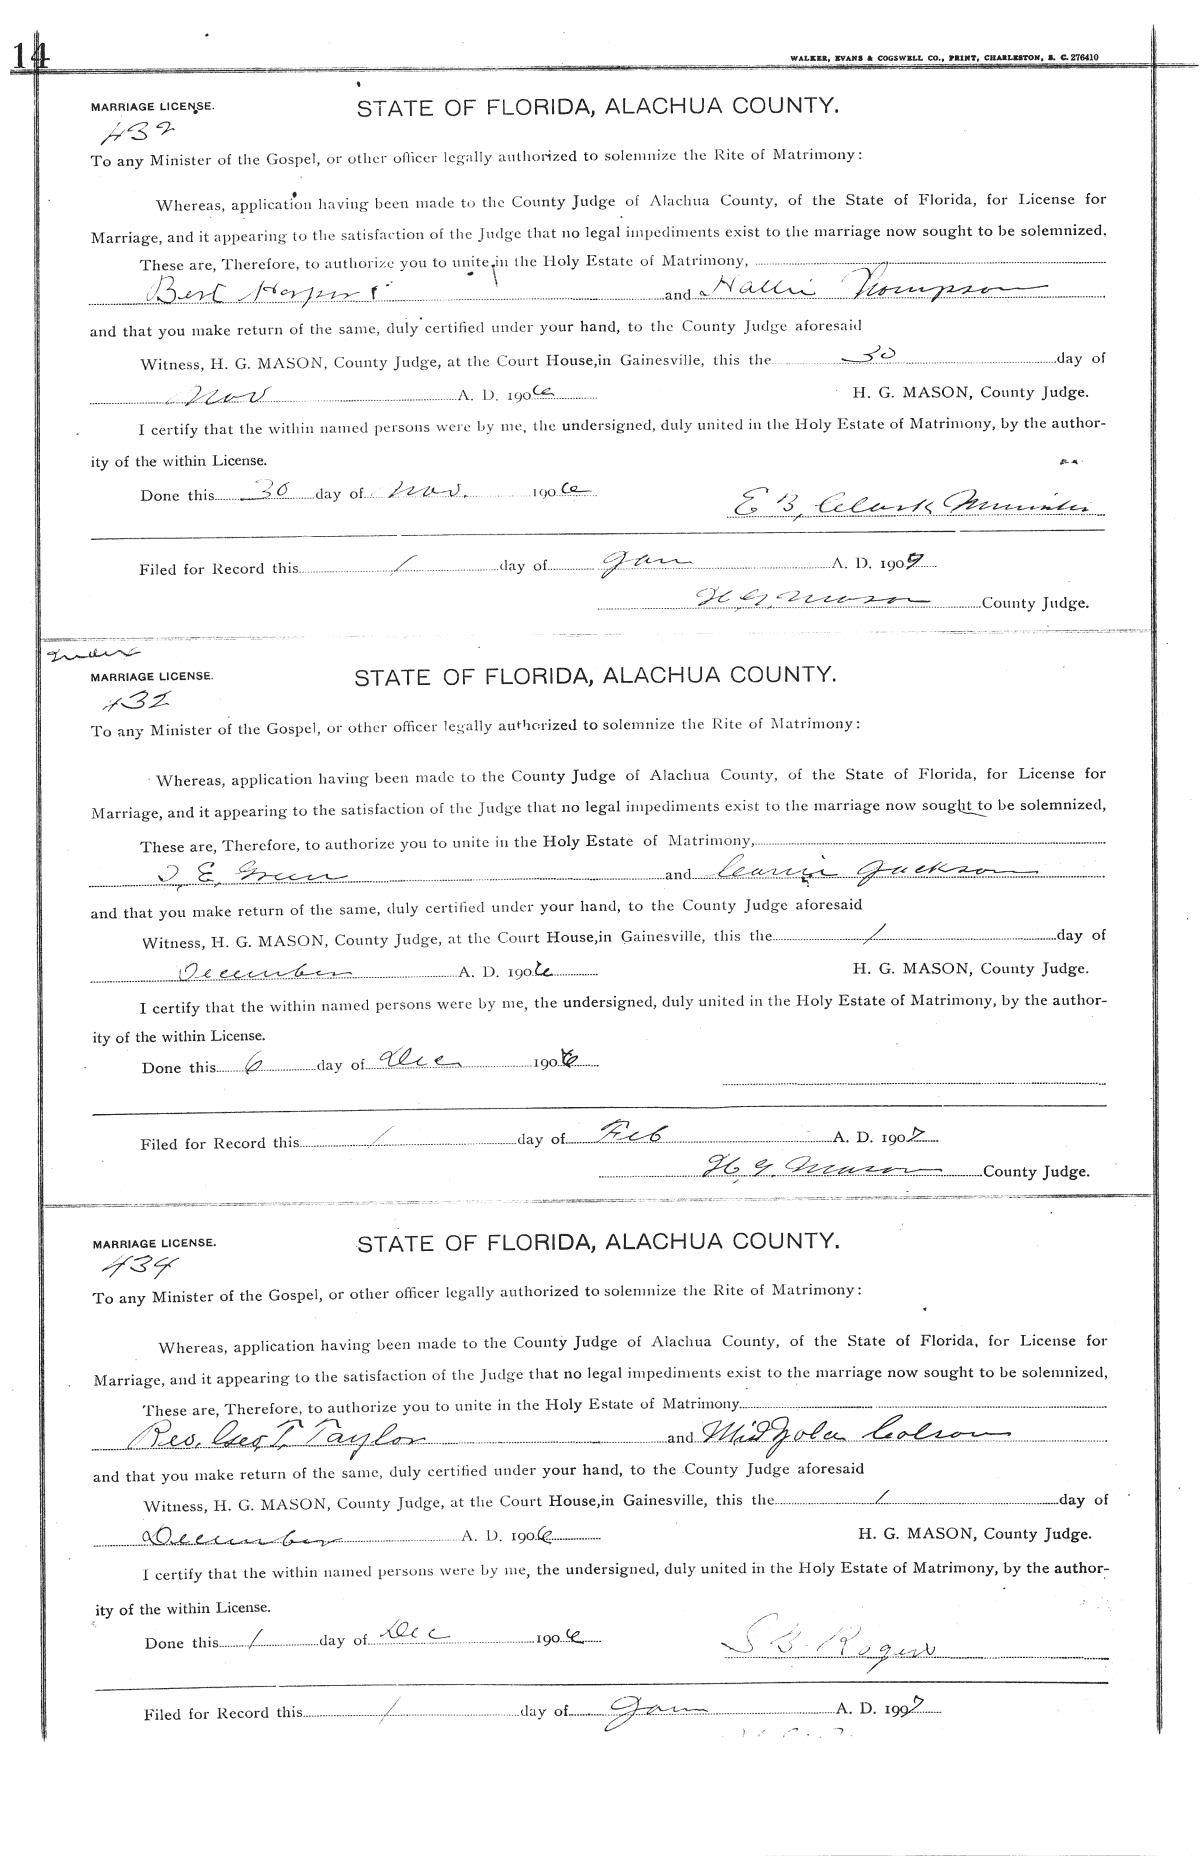 14
WALKER, EVANS & COGSWELL CO., PRINT, CHARLESTON, S. C. 276410
MARRIAGE LICENSE. STATE OF FLORIDA, ALACHUA COUNTY.
432
To any Minister of the Gospel, or other officer legally authorized to solemnize the Rite of Matrimony:
Whereas, application having been made to the County Judge of Alachua County, of the State of Florida, for License for
Marriage, and it appearing to the satisfaction of the Judge that no legal impediments exist to the marriage now sought to be solemnized.
These are, Therefore, to authorize you to unite in the Holy Estate of Matrimony,
Bert and Hallie Thompson
and that you make return of the same, duly certified under your hand, to the County Judge aforesaid
Witness, H. G. MASON, County Judge, at the Court House, in Gainesville, this the 30 day of
Nov A. D. 1906 H. G. MASON, County Judge.
I certify that the within named persons were by me, the undersigned, duly united in the Holy Estate of Matrimony, by the author-
ity of the within License.
Done this 30 day of Nov. 1906
E B, Clark Minister
Filed for Record this 1 day of Jan A. D. 1907
H. G. Mason County Judge.
Index
MARRIAGE LICENSE. STATE OF FLORIDA, ALACHUA COUNTY.
432
To any Minister of the Gospel, or other officer legally authorized to solemnize the Rite of Matrimony:
Whereas, application having been made to the County Judge of Alachua County, of the State of Florida, for License for
Marriage, and it appearing to the satisfaction of the Judge that no legal impediments exist to the marriage now sought to be solemnized,
These are, Therefore, to authorize you to unite in the Holy Estate of Matrimony,
E. Green and Carrie Jackson
and that you make return of the same, duly certified under your hand, to the County Judge aforesaid
Witness, H. G. MASON, County Judge, at the Court House, in Gainesville, this the 1 day of
December A. D. 1906 H. G. MASON, County Judge.
I certify that the within named persons were by me, the undersigned, duly united in the Holy Estate of Matrimony, by the author-
ity of the within License.
Done this 6 day of Dec 1906
Filed for Record this 1 day of Feb A. D. 1907
H. G. Mason County Judge.
MARRIAGE LICENSE. STATE OF FLORIDA, ALACHUA COUNTY.
434
To any Minister of the Gospel, or other officer legally authorized to solemnize the Rite of Matrimony:
Whereas, application having been made to the County Judge of Alachua County, of the State of Florida, for License for
Marriage, and it appearing to the satisfaction of the Judge that no legal impediments exist to the marriage now sought to be solemnized,
These are, Therefore, to authorize you to unite in the Holy Estate of Matrimony.
Rev. Geo. T. Taylor and Zola Colson
and that you make return of the same, duly certified under your hand, to the County Judge aforesaid
Witness, H. G. MASON, County Judge, at the Court House, in Gainesville, this the 1 day of
December A. D. 1906 H. G. MASON, County Judge.
I certify that the within named persons were by me, the undersigned, duly united in the Holy Estate of Matrimony, by the author-
ity of the within License.
Done this 1 day of Dec 1906
S B. Rogers
Filed for Record this 1 day of Jan A. D. 1907